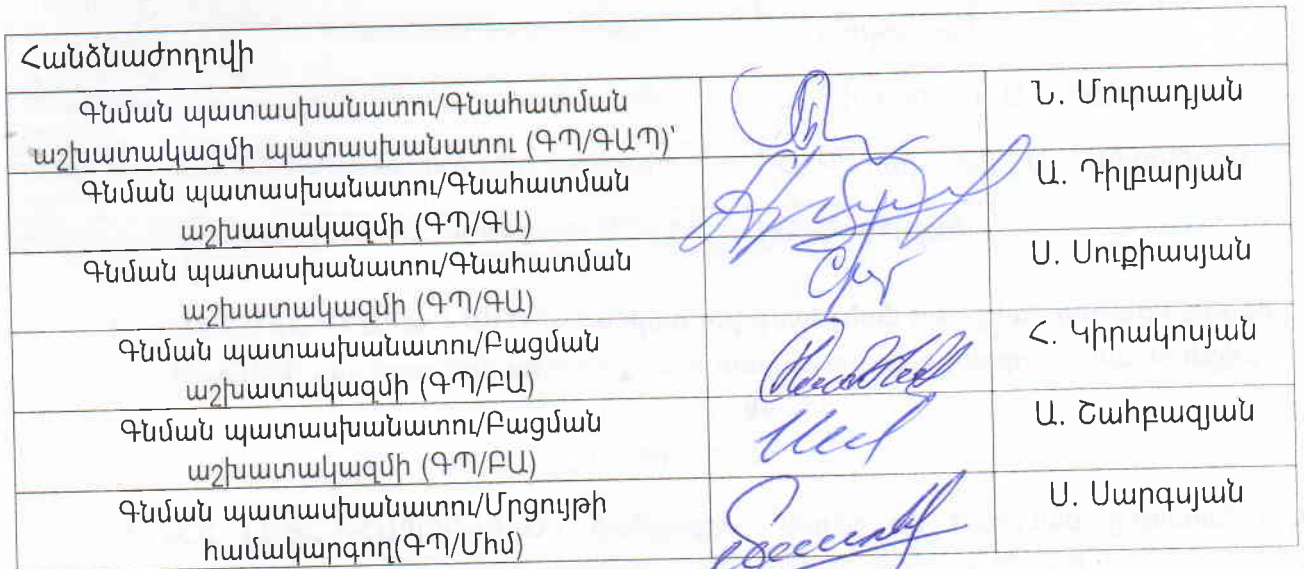 Հանձնաժողովի
Գնման պատասխանատու/Գնահատման
աշխատակազմի պատասխանատու (ԳՊ/ԳԱՊ)՝
Ն. Մուրադյան
Գնման պատասխանատու/Գնահատման
աշխատակազմի (ԳՊ/ԳԱ)
Ա. Դիլբարյան
Գնման պատասխանատու/Գնահատման
աշխատակազմի (ԳՊ/ԳԱ)
Ս. Սուքիասյան
Գնման պատասխանատու/Բացման
աշխատակազմի (ԳՊ/ԲԱ)
Հ. Կիրակոսյան
Գնման պատասխանատու/Բացման
աշխատակազմի (ԳՊ/ԲԱ)
Ա. Շահբազյան
Գնման պատասխանատու/Մրցույթի
համակարգող(ԳՊ/Մհմ)
Ս. Սարգսյան